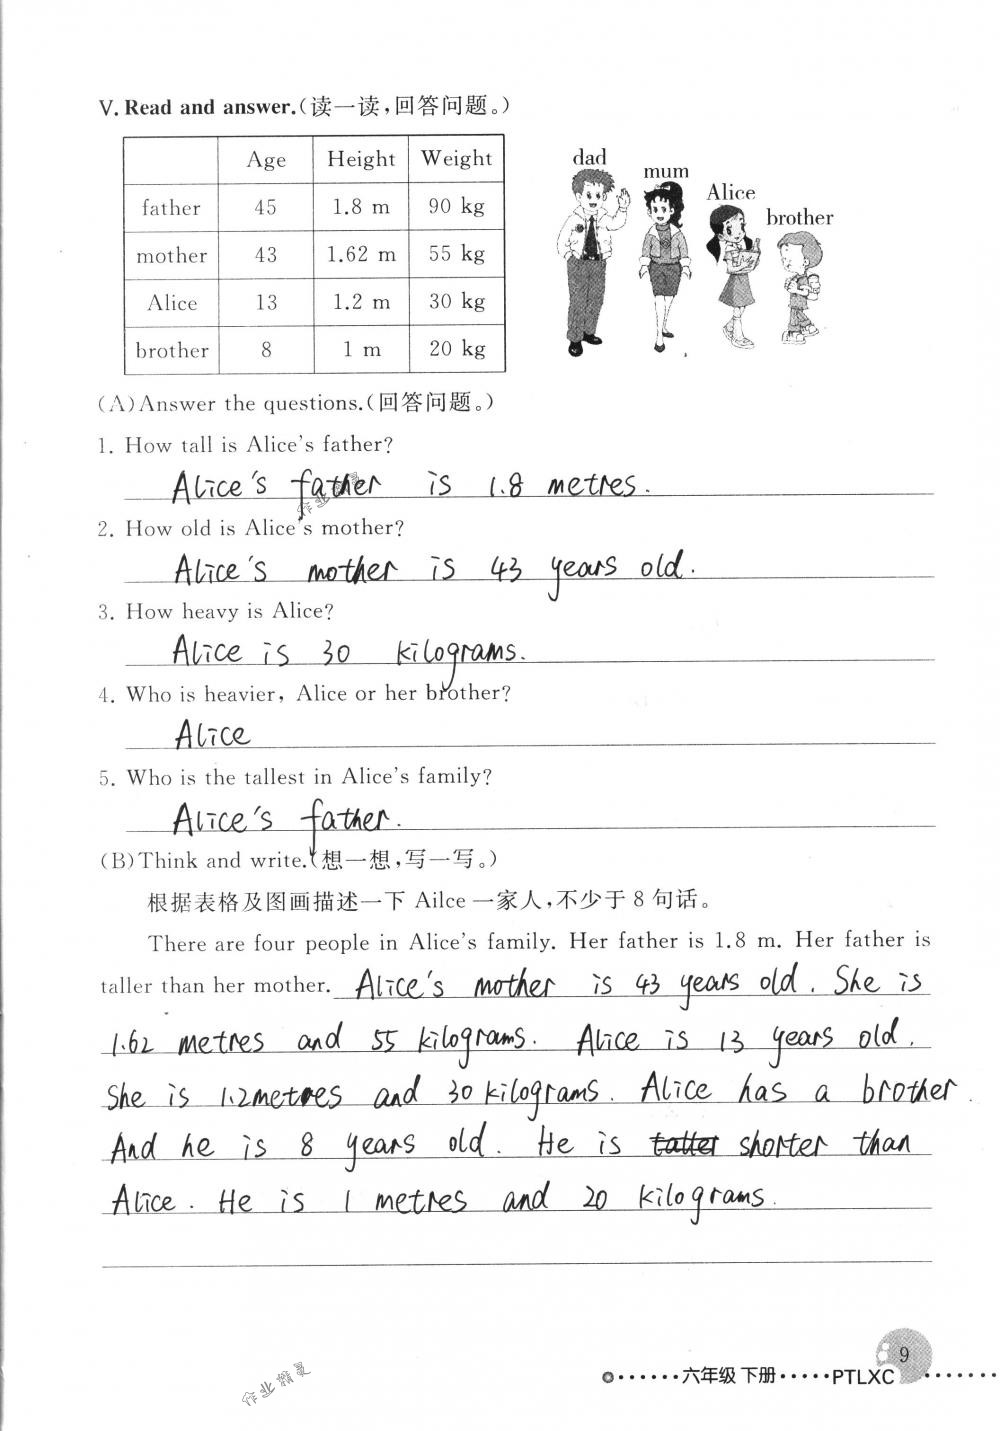 V. Read and answer.(读一读,回答问题。)
Age Height Weight
father 45 1.8 m 90 kg
mother 43 1.62 m 55 kg
Alice 13 1.2 m 30 kg
brother 8 1 m 20 kg
dad
mum
Alice
brother
(A)Answer the questions.(回答问题。)
1. How tall is Alice's father?
Alice's father is 1.8 metres.
作业精灵
2. How old is Alice's mother?
Alice's mother is 43 years old.
3. How heavy is Alice?
Alice is 30 kilograms.
4. Who is heavier, Alice or her brother?
Alice
5. Who is the tallest in Alice's family?
Alice's father.
(B)Think and write.(想一想,写一写。)
根据表格及图画描述一下 Ailce 一家人,不少于 8 句话。
There are four people in Alice's family. Her father is 1.8 m. Her father is
taller than her mother. Alice's mother is 43 years old. She is
1.62 metres and 55 kilograms. Alice is 13 years old.
She is 1.2 metres and 30 kilograms. Alice has a brother.
And he is 8 years old. He is shorter than
Alice. He is 1 metres and 20 kilograms.
9
六年级 下册·····PTLXC
作业精灵